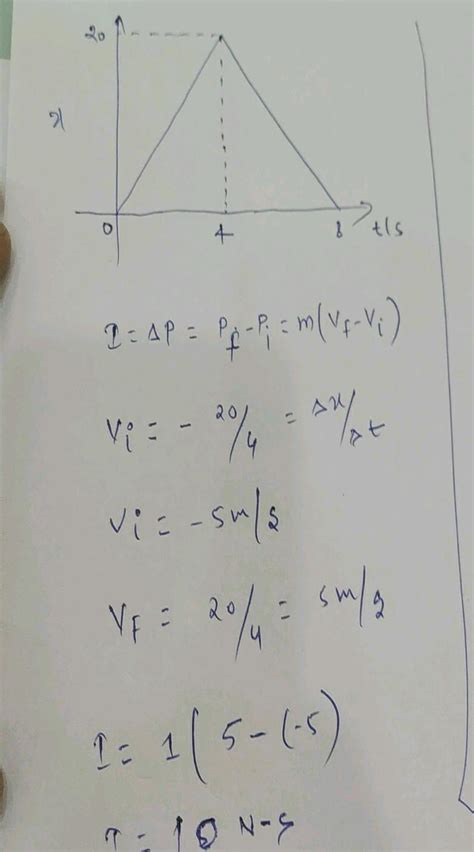 20
x
0 4 8 t(s
I = ΔP = Pf - Pi = m(Vf - Vi)
Vi = - 20/4 = Δx/Δt
Vi = -5m/s
VF = 20/4 = 5m/s
I = 1 ( 5 - (-5)
I = 10 N-s